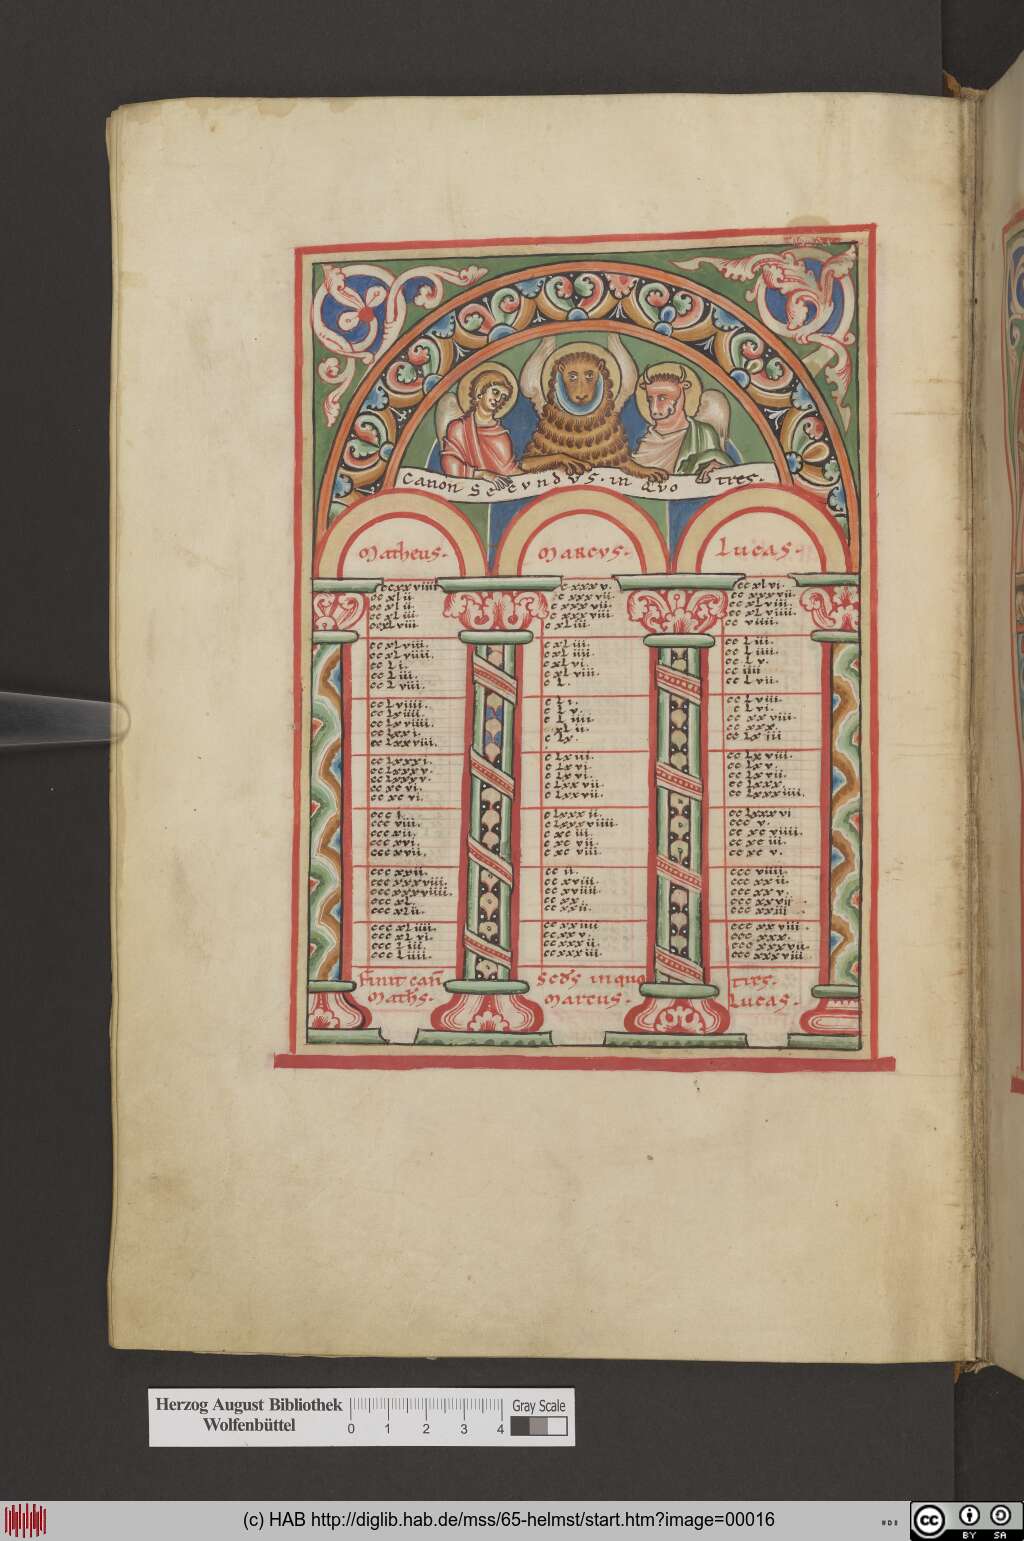 Canon Secvndvs · in Qvo tres ·
Matheus ·
ccxxviiii
cc xl ii
cc xl ii.
cc xl iii
ccxl viii
cc xl viii.
cc xl viiii.
cc l i.
cc l iii.
cc l viii.
cc l viiii.
cc lx iiii.
cc lx viiii.
cc lxx i.
cc lxx viii.
cc lxxx i.
cc lxxx v.
cc lxxx v.
cc xc vi.
cc xc vi.
ccc i.
ccc viii.
ccc xii.
ccc xvi.
ccc xvii.
ccc xxii.
ccc xxxviii.
ccc xxxviiii.
ccc xl.
ccc xl ii.
ccc xl iiii.
ccc xl vi.
ccc l iii.
ccc l iiii.
Finit cañ
Maths ·
Marcvs ·
c xxx v.
c xxx vii.
c xxx vii.
c xxx viii
c xl iii.
c xl iii.
c xl iiii.
c xl vi.
c xl viii.
c l.
c l i.
c l v.
c l iiii
xl ii.
c lx.
c lx iii.
c lx vi.
c lx vi.
c lxx vii.
c lxx vii.
c lxxx ii.
c lxxx viiii.
c xc iii.
c xc vii.
c xc viii.
cc ii.
cc xviii.
cc xviiii
cc xx.
cc xx ii.
cc xx iiii
cc xx v.
cc xxx ii.
cc xxx iii.
Scds in quo
Marcus ·
Lucas ·
cc xl vi.
cc xxx vii.
cc xl viii.
cc xl viiii.
cc viiii.
cc l iii.
cc l iiii.
cc l v.
cc iiii
cc l vii.
cc l viii.
c l vi.
cc xx viii.
cc xxx.
cc lx iii
cc lx viii.
cc lx v.
cc lx vii.
cc lxxx.
cc lxxx iiii.
cc lxxx vi
ccc v.
cc xc viiii.
cc xc iii.
cc xc v.
ccc viiii.
ccc xx ii.
ccc xx v.
ccc xx vii
ccc xx iii
ccc xx viii.
ccc xxx.
ccc xxx vii.
ccc xxx viii
tres.
Lucas ·
Herzog August Bibliothek
Wolfenbüttel
0 1 2 3 4
Gray Scale
(c) HAB http://diglib.hab.de/mss/65-helmst/start.htm?image=00016
cc BY SA